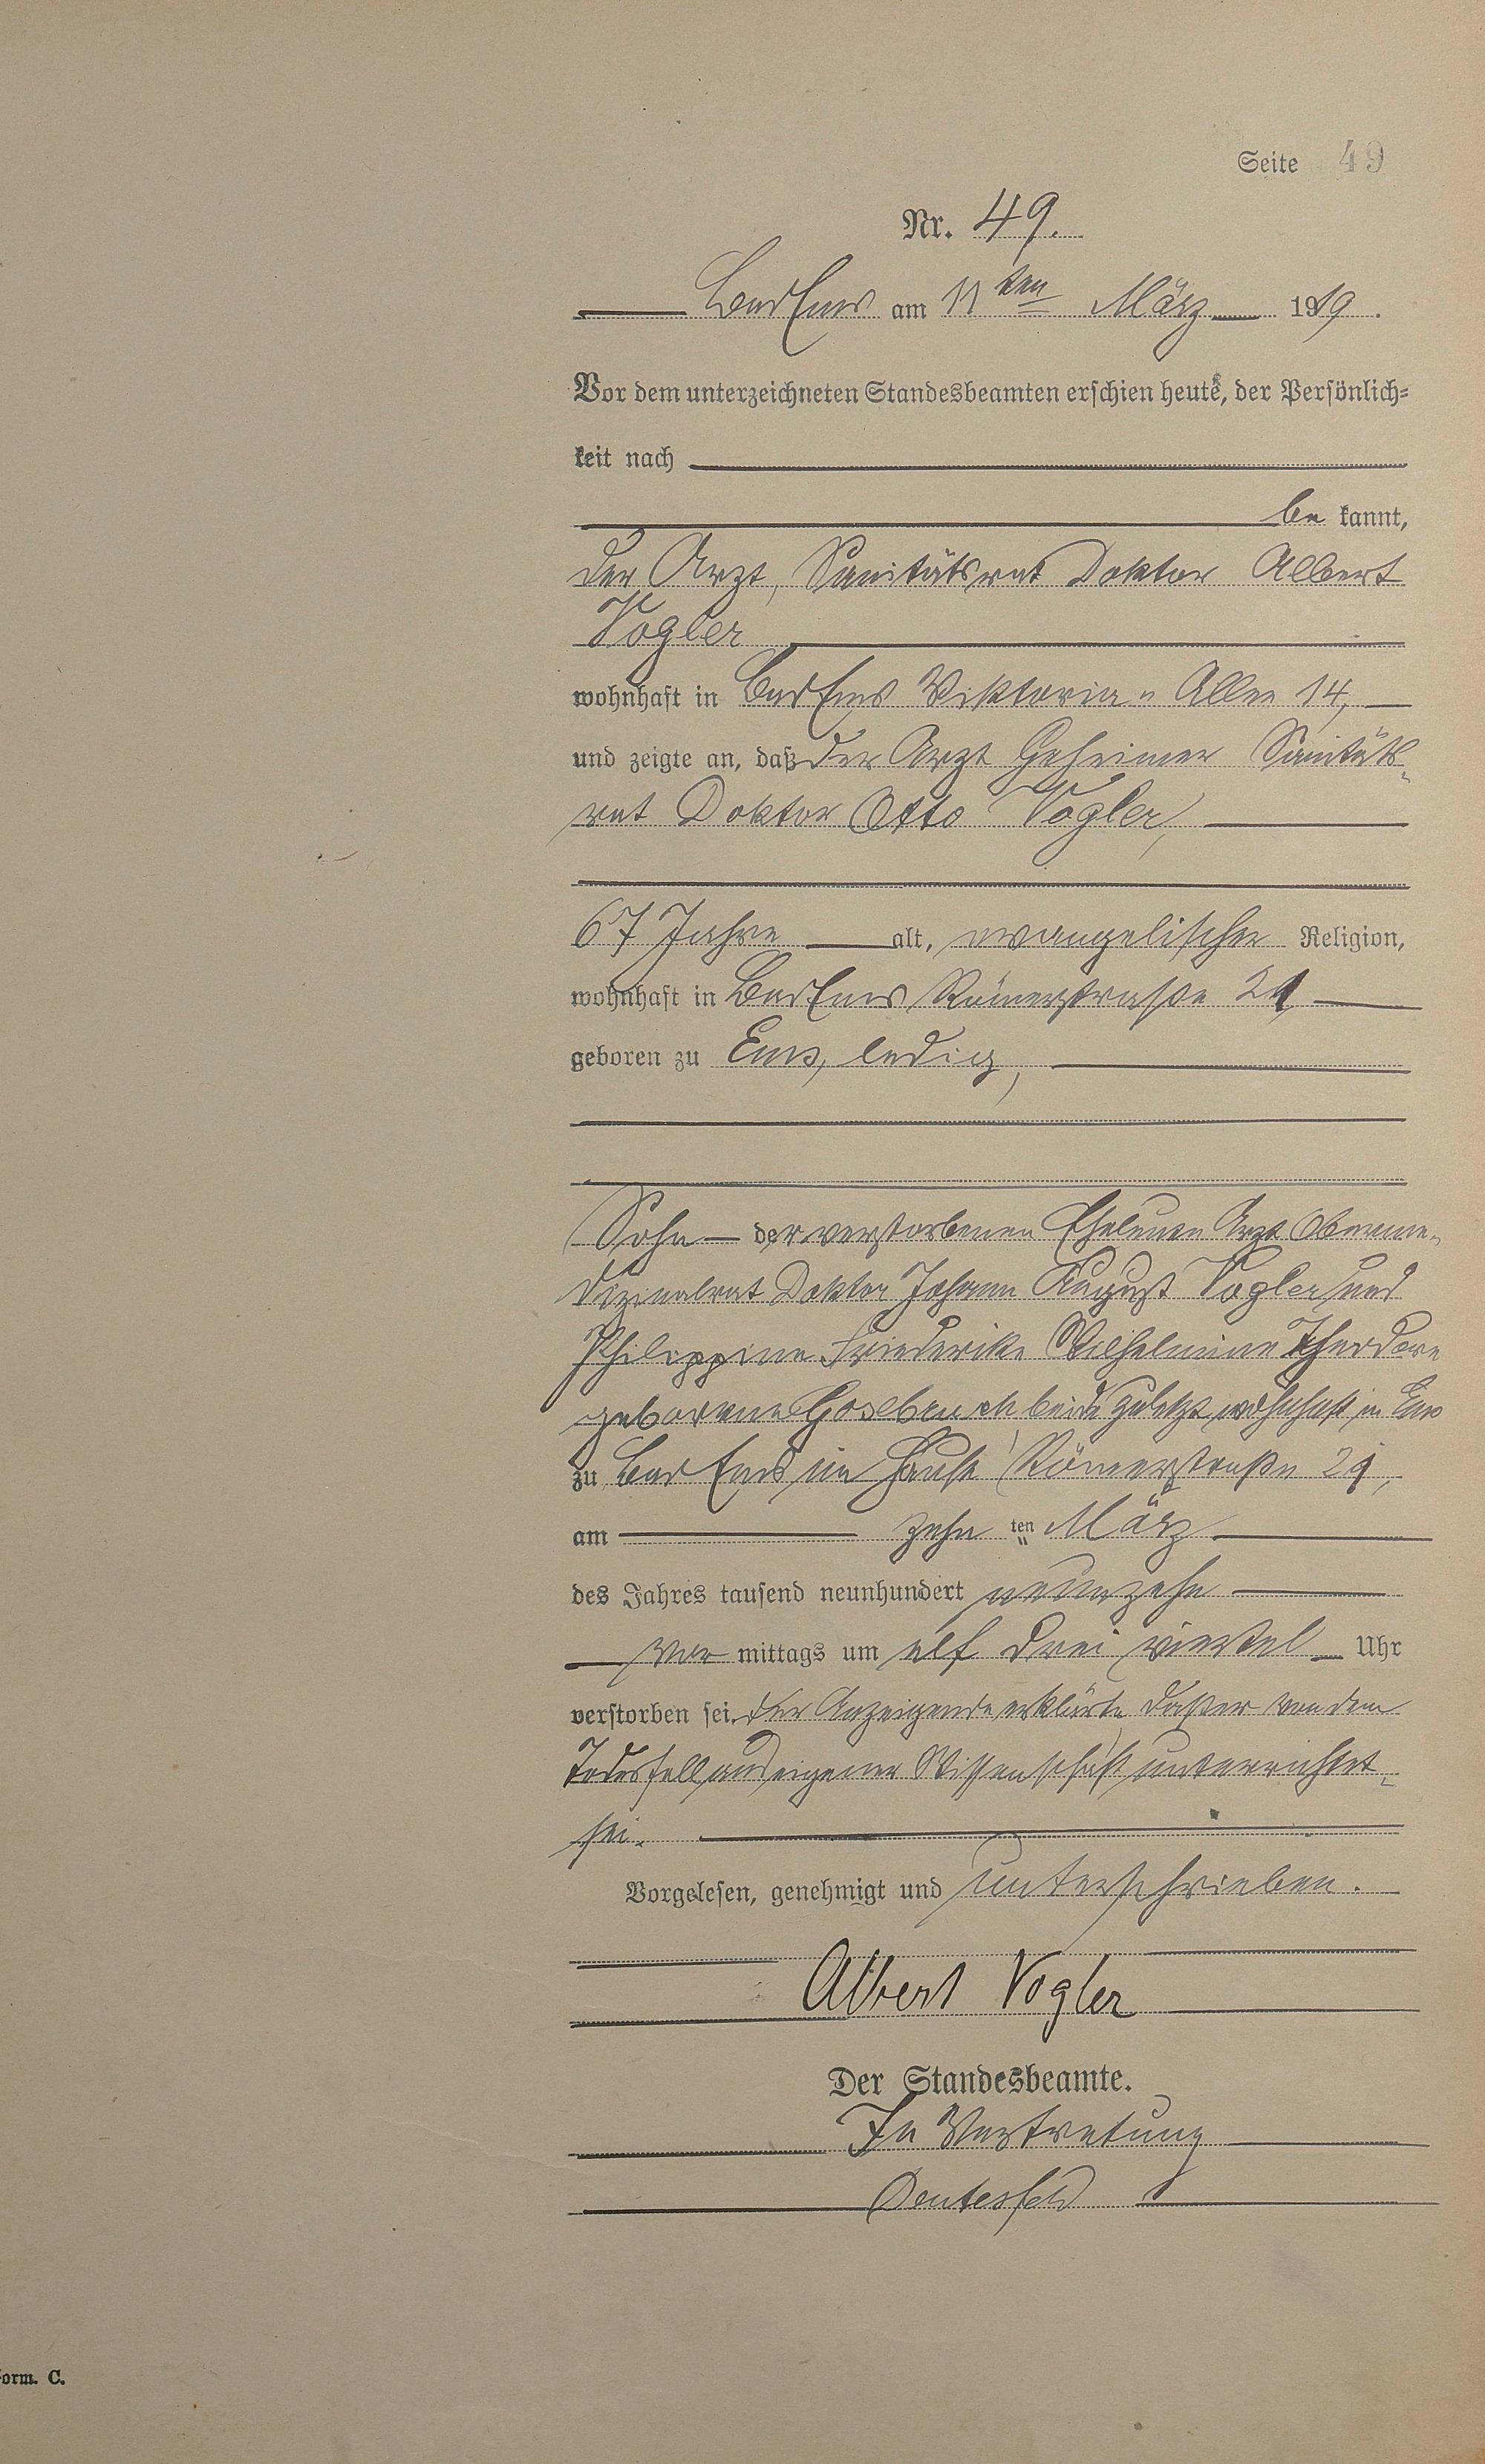 Seite 49
Nr. 49.
Bad Ems am 11ten März 1919.
Vor dem unterzeichneten Standesbeamten erschien heute, der Persönlich-
keit nach
be kannt,
der Arzt, Sanitätsrat Doktor Albert
Vogler
wohnhaft in Bad Ems Viktoria-Allee 14,
und zeigte an, daß der Arzt Geheimer Sanitäts-
rat Doktor Otto Vogler,
67 Jahre alt, evangelischer Religion,
wohnhaft in Bad Ems, Römerstraße 21
geboren zu Ems, ledig,
Sohn der verstorbenen Eheleute Arzt Oberme-
dizinalrat Doktor Johann August Vogler und
Philippine Friederike Wilhelmine Theodore
geborene Gosebruch beide zuletzt wohnhaft in Ems
zu Bad Ems im Hause Römerstraße 21,
am zehn ten März
des Jahres tausend neunhundert neunzehn
vor mittags um elf drei viertel Uhr
verstorben sei. Der Anzeigende erklärte, daß er von dem
Todesfall aus eigener Wissenschaft unterrichtet
sei.
Vorgelesen, genehmigt und unterschrieben.
Albert Vogler
Der Standesbeamte.
In Vertretung
orm. C.